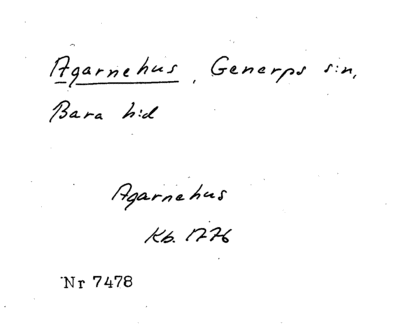 Agarnehus, Genarps s:n,
Bara h:d
Agarnehus
Kb. 1776
Nr 7478